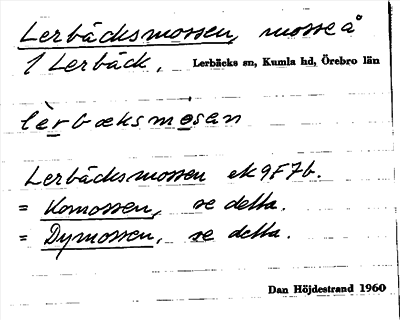 Lerbäcksmossen, mosse å
1 Lerbäck. Lerbäcks sn, Kumla hd, Örebro län
lèrbæksmosan
Lerbäcksmossen ek 9F7b.
= Komossen, se detta.
= Dymossen, se detta.
Dan Höjdestrand 1960